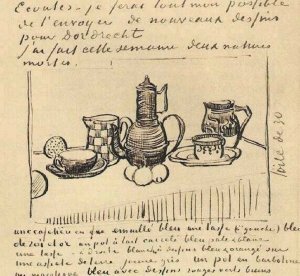 Ecoutes - je ferai tout mon possible
de t'envoyer de nouveaux dessins
pour Dordrecht
J'ai fait cette semaine deux natures
mortes.
toile de 30
une cafetière en fer émaillé bleu une tasse (à gauche) bleu
de roi et or un pot à lait carrelé bleu pâle et blanc
une tasse - à droite blanche à dessins bleus et orangé sur
une assiette de terre jaune gris un pot en barbotine
bleu avec dessins rouges verts bruns